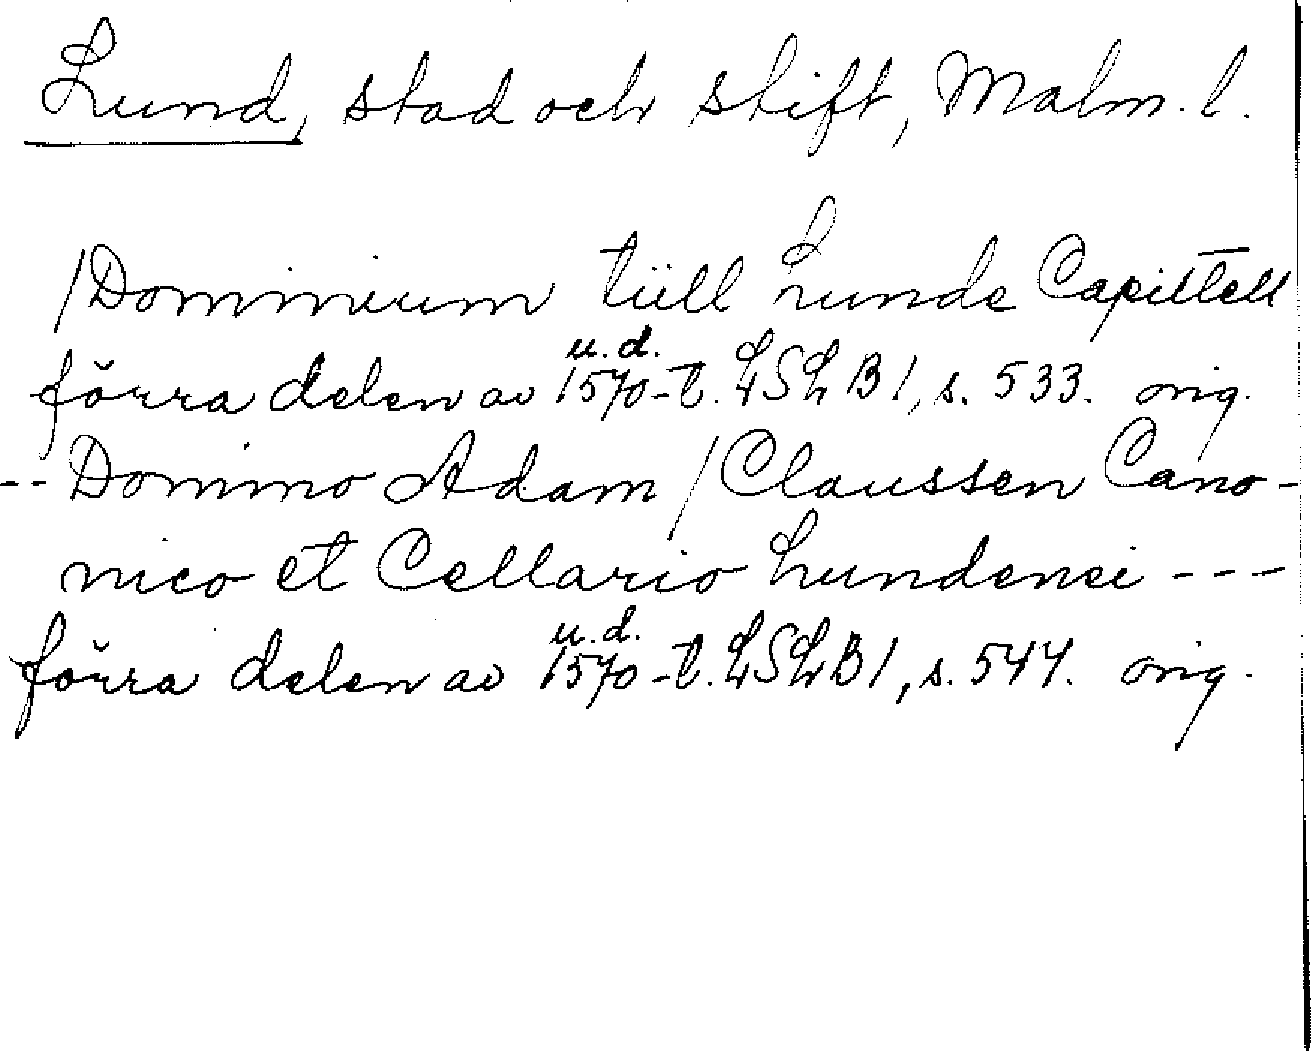 Lund, stad och stift, Malm. l.
/Dominium tüll Lunde Capittell
u. d.
förra delen av 1570-t. LSLB1, s. 533. orig.
-- Domino Adam / Claussen Cano-
nico et Cellario Lundensi ---
u. d.
förra delen av 1570-t. LSLB1, s. 544. orig.